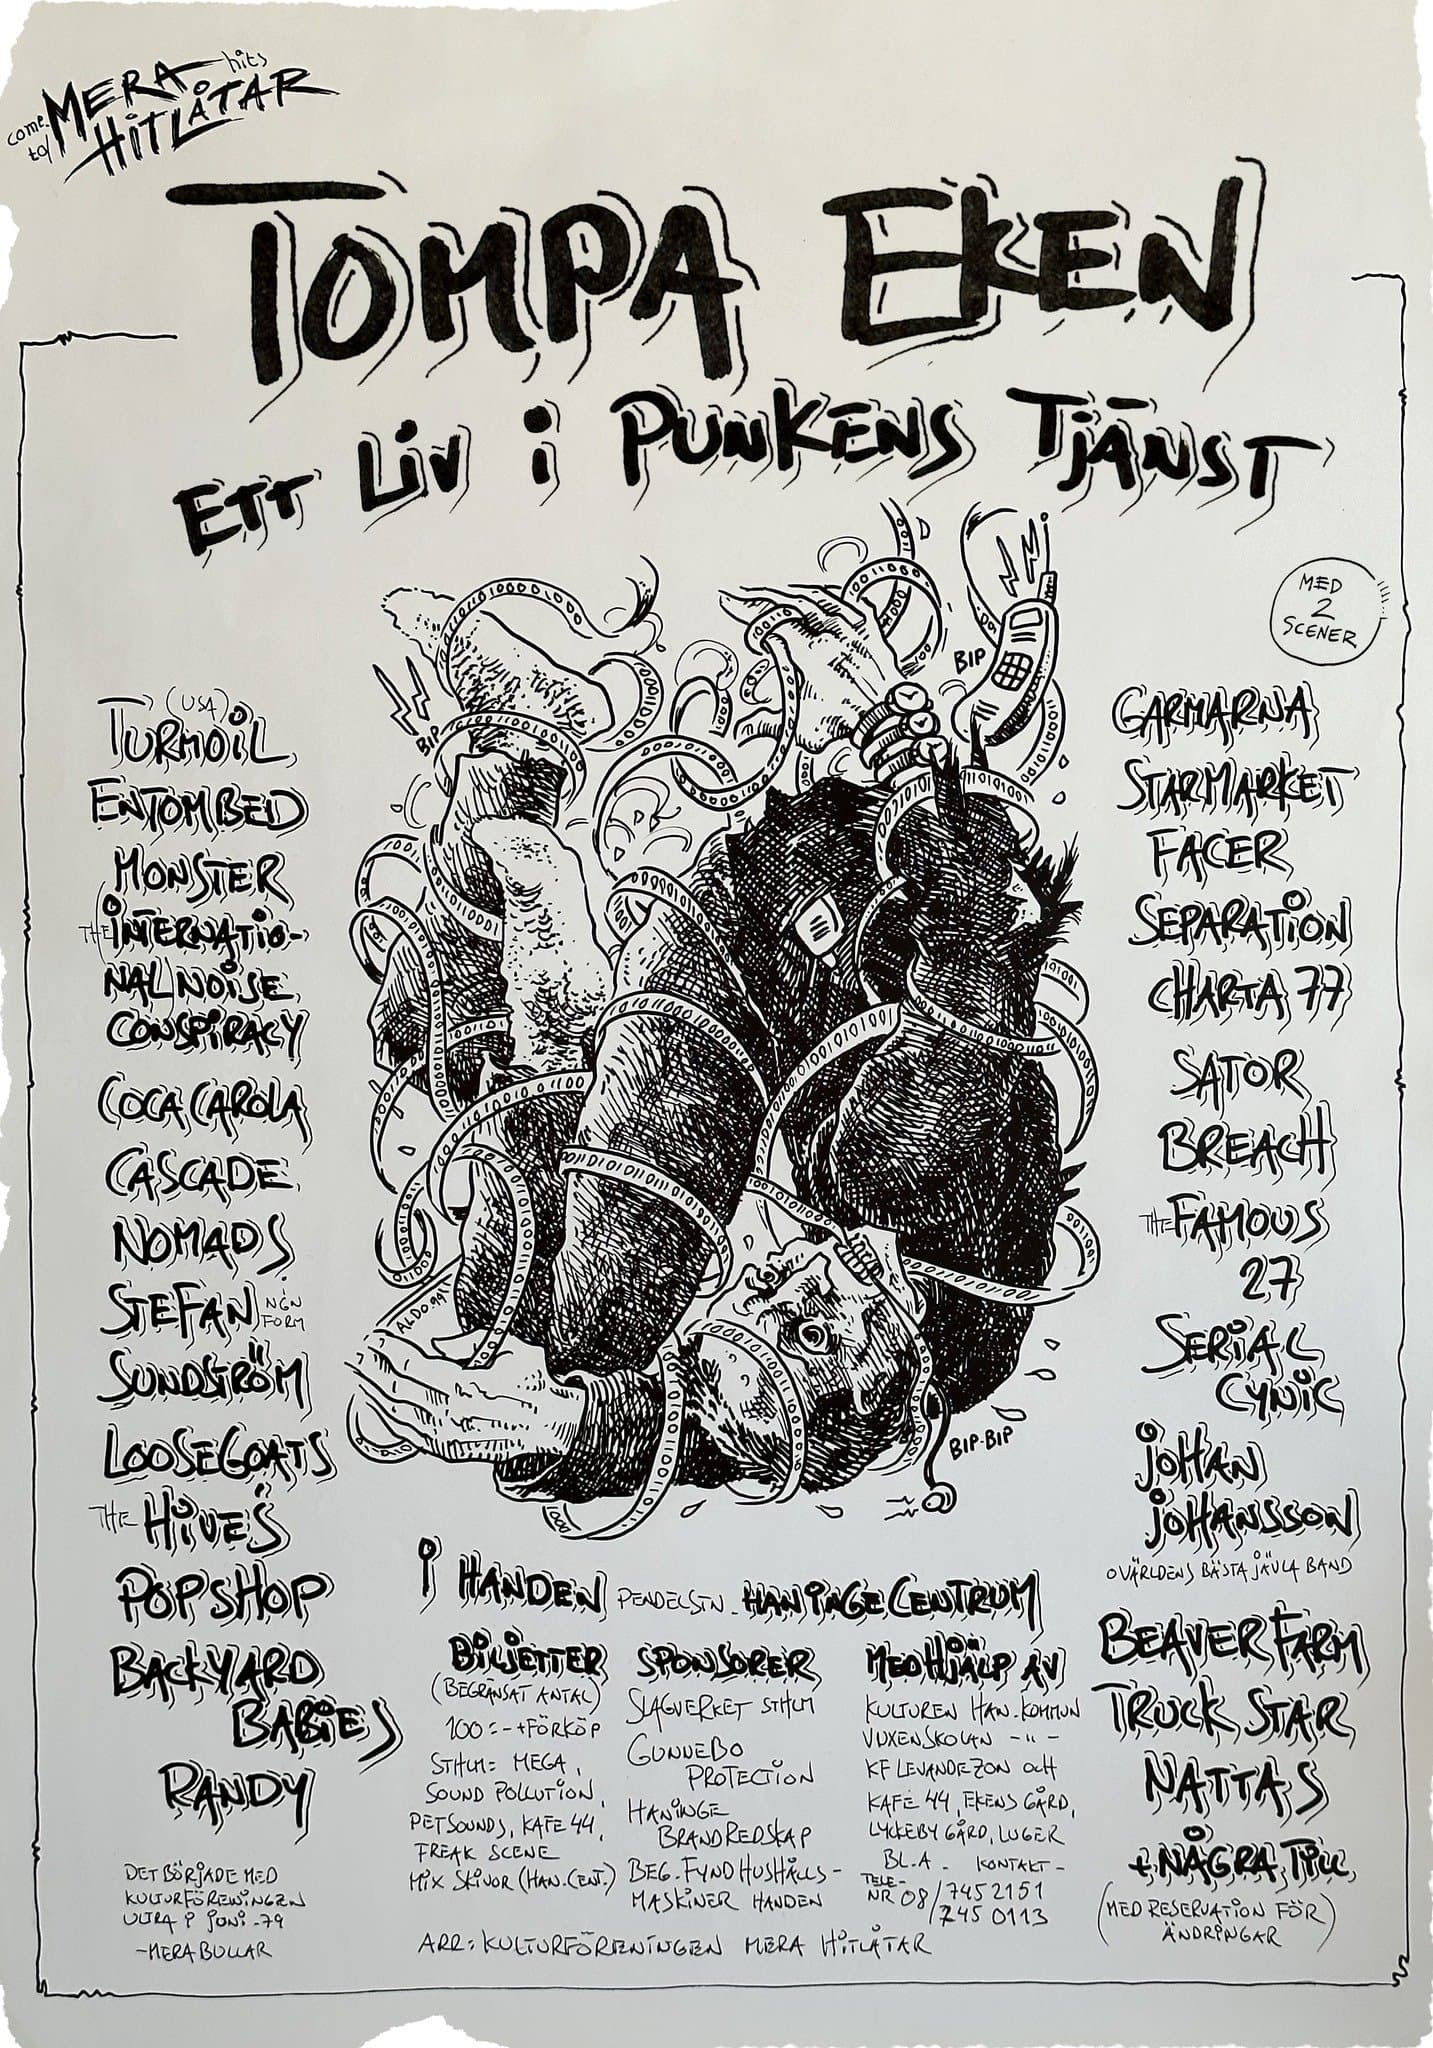 come to/ MERA hits
HITLÅTAR
TOMPA EKEN
ETT LIV I PUNKENS TJÄNST
MED
2
SCENER
BIP
BIP
BIP-BIP
(USA)
TURMOIL
ENTOMBED
MONSTER
THE INTERNATIO-
NAL NOISE
CONSPIRACY
COCA CAROLA
CASCADE
NOMADS
STEFAN NGN FORM
SUNDSTRÖM
LOOSEGOATS
THE HIVES
POPSHOP
BACKYARD
BABIES
RANDY
DET BÖRJADE MED
KULTURFÖRENINGEN
ULTRA I JUNI -79
-MERA BULLAR
I HANDEN PENDELSTN. HANINGE CENTRUM
BILJETTER
(BEGRÄNSAT ANTAL)
100:- + FÖRKÖP
STHLM: MEGA,
SOUND POLLUTION,
PETSOUNDS, KAFE 44,
FREAK SCENE
MIX SKIVOR (HAN.CENT.)
SPONSORER
SLAGVERKET STHLM
GUNNEBO
PROTECTION
HANINGE
BRANDREDSKAP
BEG. FYND HUSHÅLLS-
MASKINER HANDEN
MED HJÄLP AV
KULTUREN HAN. KOMMUN
VUXENSKOLAN -"-
KF LEVANDE ZON OCH
KAFE 44, EKENS GÅRD,
LYCKEBY GÅRD, LUGER
BL.A. KONTAKT-
TELE-
NR 08/7452151
/745 0113
ARR: KULTURFÖRENINGEN MERA HITLÅTAR
GARMARNA
STARMARKET
FACER
SEPARATION
CHARTA 77
SATOR
BREACH
THE FAMOUS
27
SERIAL
CYNIC
JOHAN
JOHANSSON
O VÄRLDENS BÄSTA JÄVLA BAND
BEAVER FARM
TRUCK STAR
NATTAS
+ NÅGRA TILL
(MED RESERVATION FÖR
ÄNDRINGAR)